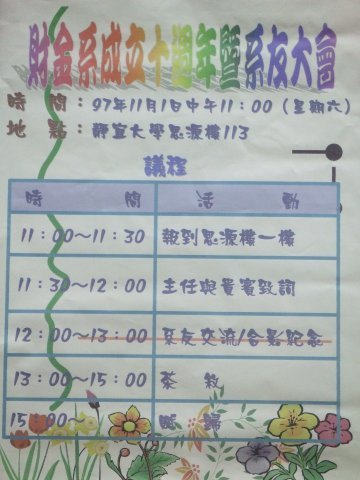 財金系成立十週年暨系友大會
時 間：97年11月1日中午11：00（星期六）
地 點：靜宜大學思源樓113
議程
時 間 活 動
11：00～11：30 報到思源樓一樓
11：30～12：00 主任與貴賓致詞
12：00～13：00 系友交流/合影紀念
13：00～15：00 茶 敘
15：00～ 賦 歸